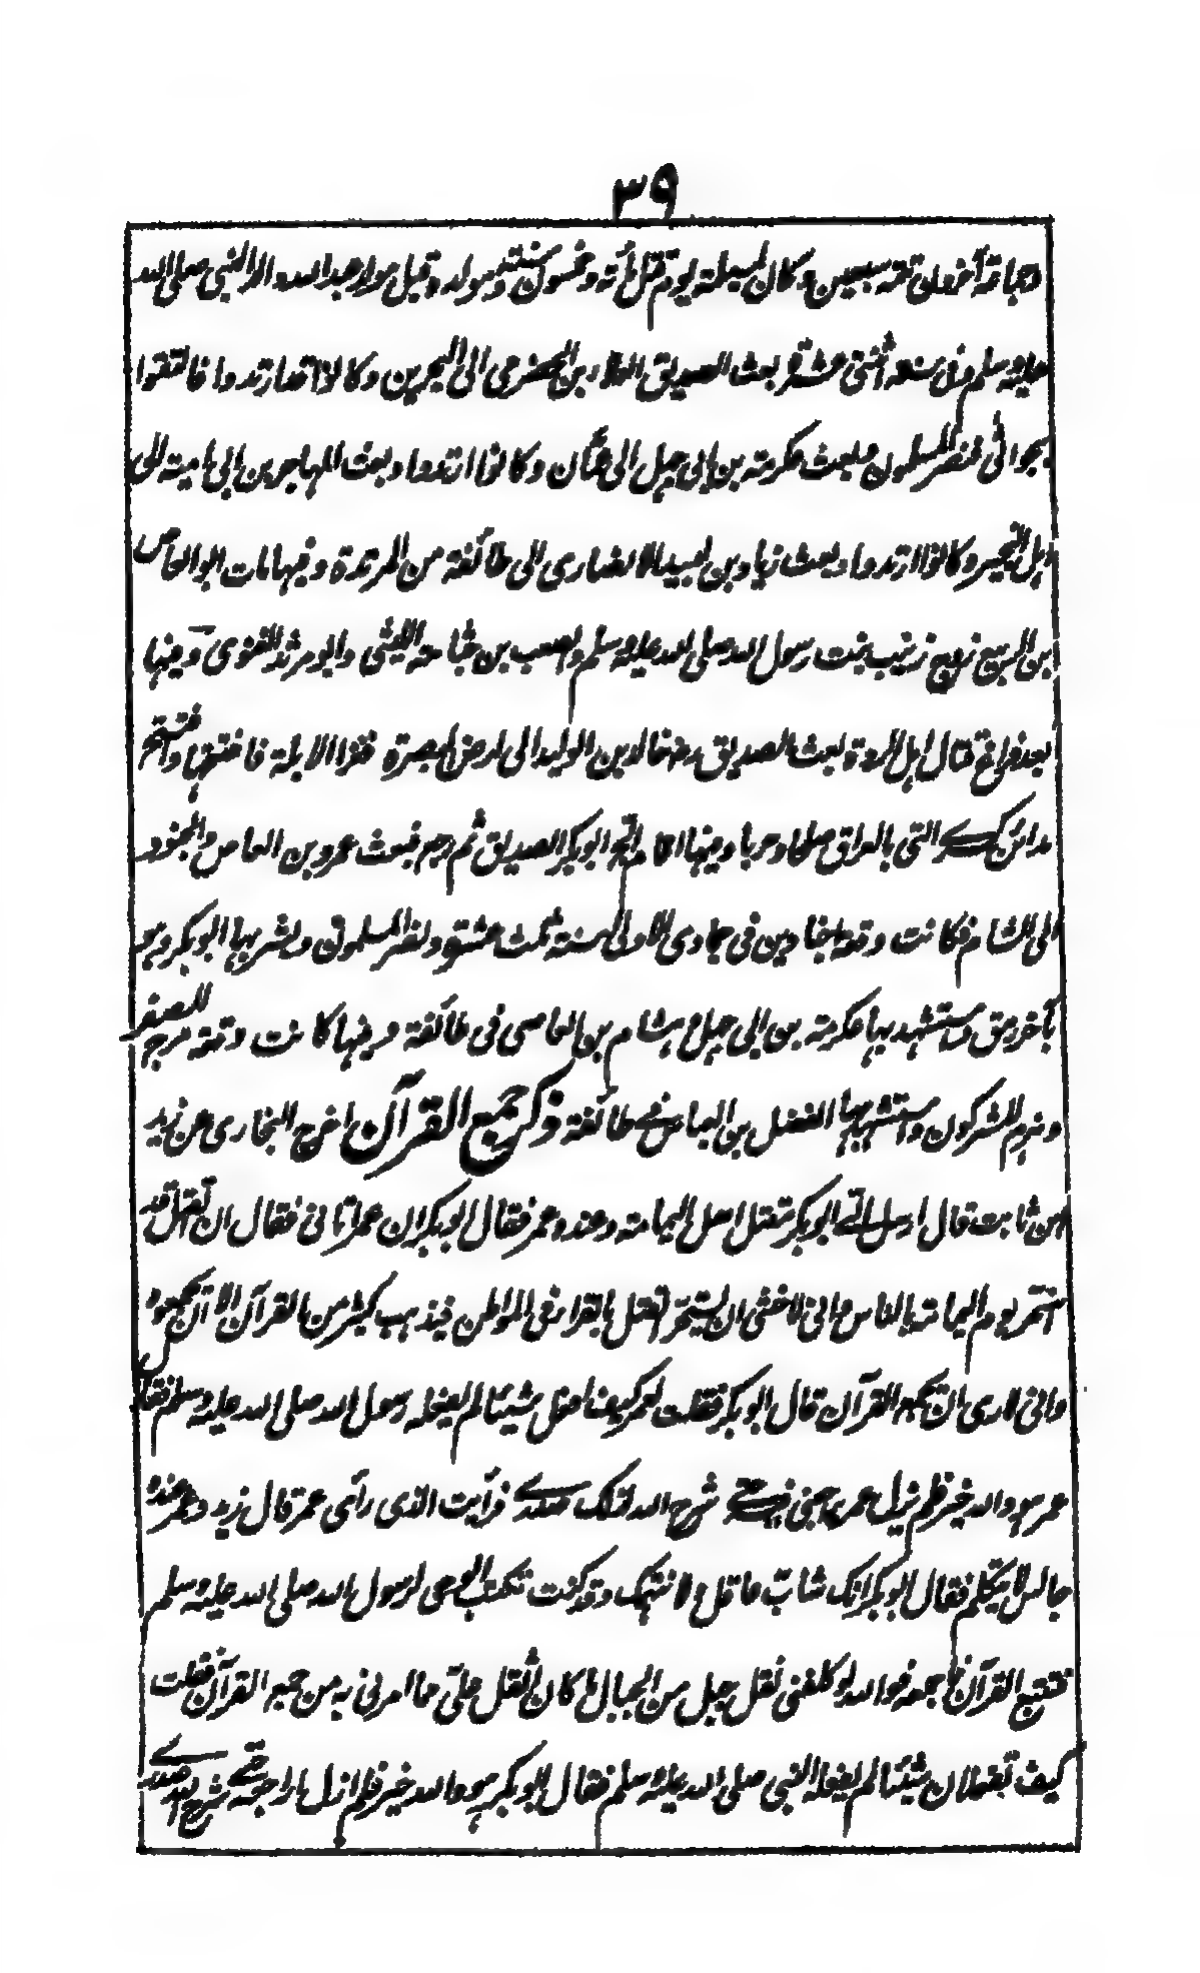 ٣٩
وجماعة آخرون تتمة سبعين وكان لمسيلمة يوم قتل مائة وخمسون سنة ومولده قبل مولد عبد الله والد النبي صلى الله
عليه وسلم وفى سنة اثنتى عشرة بعث الصديق العلاء بن الحضرمى الى البحرين وكانوا قد ارتدوا فالتقوا
بجواثى فنصر المسلمون وبعث عكرمة بن ابى جهل الى عمان وكانوا ارتدوا وبعث المهاجر بن ابى امية الى
اهل النجير وكانوا ارتدوا وبعث زياد بن لبيد الانصارى الى طائفة من المرتدة وفيها مات ابو العاص
بن الربيع زوج زينب بنت رسول الله صلى الله عليه وسلم والصعب بن جثامة الليثى وابو مرثد الغنوى وفيها
بعد فراغ قتال اهل الردة بعث الصديق رضـ خالد بن الوليد الى ارض البصرة فغزا الابلة فافتتحها وافتتح
مدائن كسرى التى بالعراق صلحا وحربا وفيها اقام الحج ابو بكر الصديق ثم رجع فبعث عمرو بن العاص والجنود
الى الشام فكانت وقعة اجنادين فى جمادى الاولى سنة ثلث عشرة ونصر المسلمون وبشر بها ابو بكر وهو
بآخر رمق واستشهد بها عكرمة بن ابى جهل وهشام بن العاصى فى طائفة وفيها كانت وقعة مرج الصفر
وهزم المشركون واستشهد بها الفضل بن العباس فى طائفة ذكر جمع القرآن اخرج البخارى عن زيد
بن ثابت قال ارسل الى ابو بكر مقتل اهل اليمامة وعنده عمر فقال ابو بكر ان عمر اتانى فقال ان القتل قد
استحر يوم اليمامة بالناس وانى لاخشى ان يستحر القتل بالقراء فى المواطن فيذهب كثير من القرآن الا ان يجمعوه
وانى لارى ان تجمع القرآن قال ابو بكر فقلت لعمر كيف افعل شيئا لم يفعله رسول الله صلى الله عليه وسلم فقال
عمر هو والله خير فلم يزل عمر يراجعنى فيه حتى شرح الله لذلك صدرى فرأيت الذى رأى عمر قال زيد وعمر عنده
جالس لا يتكلم فقال ابو بكر انك شاب عاقل ولا نتهمك وقد كنت تكتب الوحى لرسول الله صلى الله عليه وسلم
فتتبع القرآن فاجمعه فوالله لو كلفنى نقل جبل من الجبال ما كان اثقل علىّ مما امرنى به من جمع القرآن فقلت
كيف تفعلان شيئا لم يفعله النبى صلى الله عليه وسلم فقال ابو بكر هو والله خير فلم ازل اراجعه حتى شرح الله صدرى